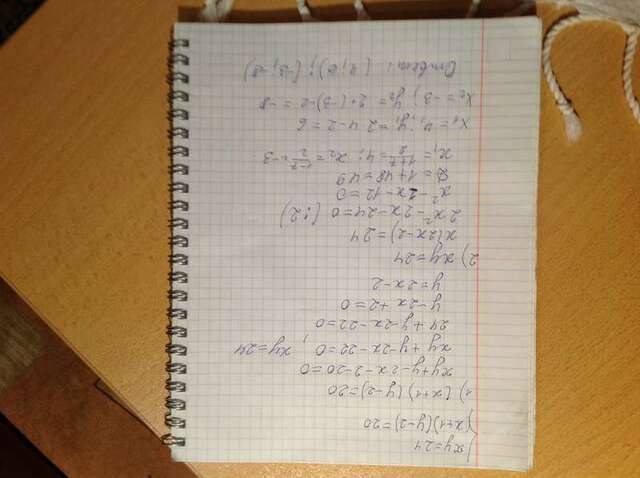 {xy=24
(x+1)(y-2)=20
1) (x+1)(y-2)=20
xy+y-2x-2-20=0
xy+y-2x-22=0 ; xy=24
24+y-2x-22=0
y-2x+2=0
y=2x-2
2) xy=24
x(2x-2)=24
2x²-2x-24=0 (:2)
x²-x-12=0
D=1+48=49
x₁=(1+7)/2=4; x₂=(1-7)/2=-3
x₁=4; y₁=2·4-2=6
x₂=-3; y₂=2·(-3)-2=-8
Ответ: (4;6); (-3;-8)